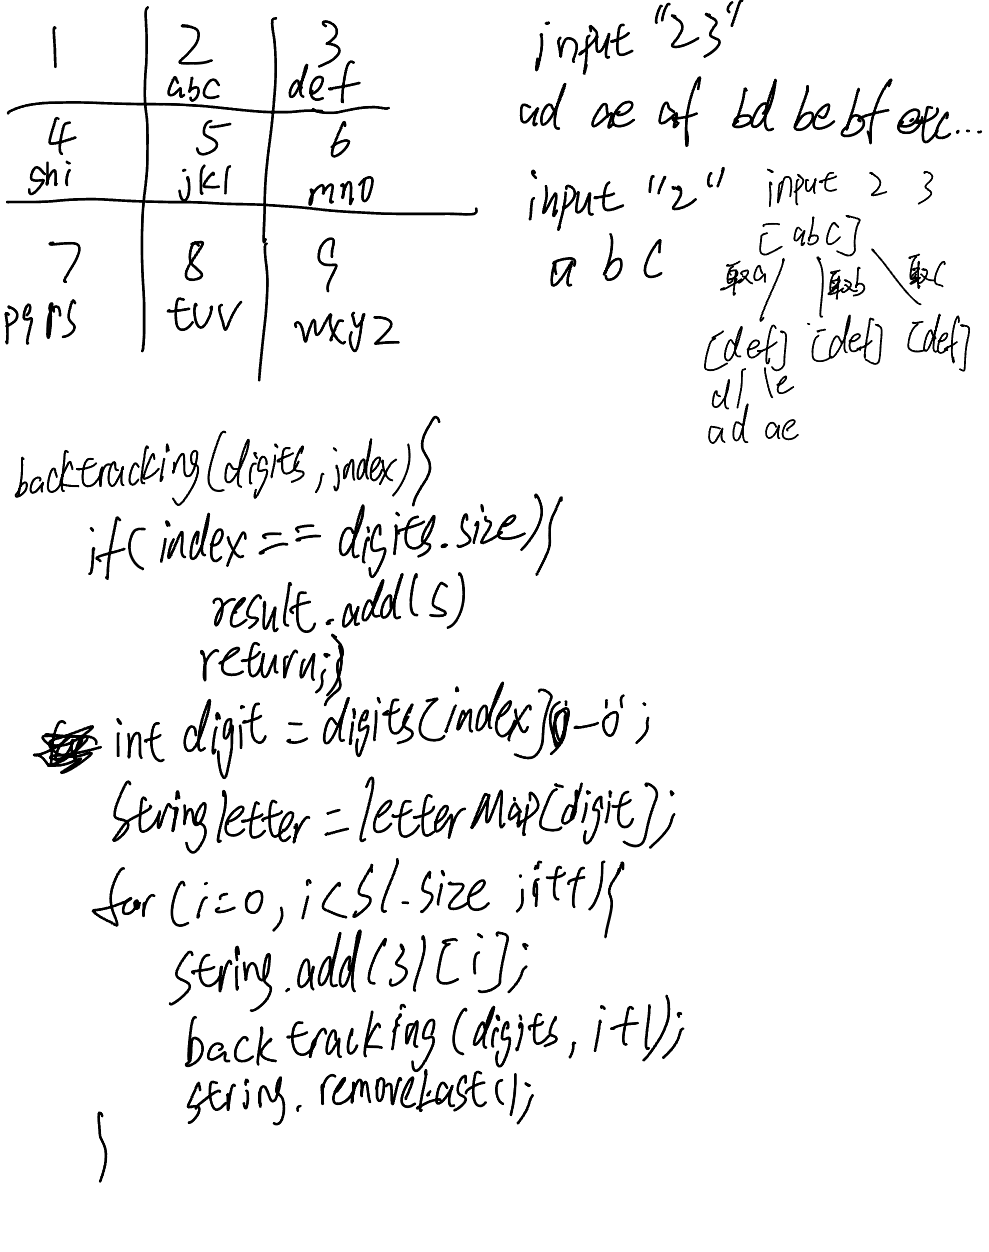 1 2 3
abc def
4 5 6
ghi jkl mno
7 8 9
pqrs tuv wxyz
input "23"
ad ae af bd be bf etc...
input "2"
a b c
input 2 3
[abc]
取a 取b 取c
[def] [def] [def]
d e
ad ae
backtracking(digits, index){
if(index == digits.size){
result.add(s)
return;}
int digit = digits[index]-'0';
String letter = letterMap[digit];
for(i=0, i<sl.size ;i++){
string.add(3)[i];
backtracking(digits, i+1);
string.removeLast();
}